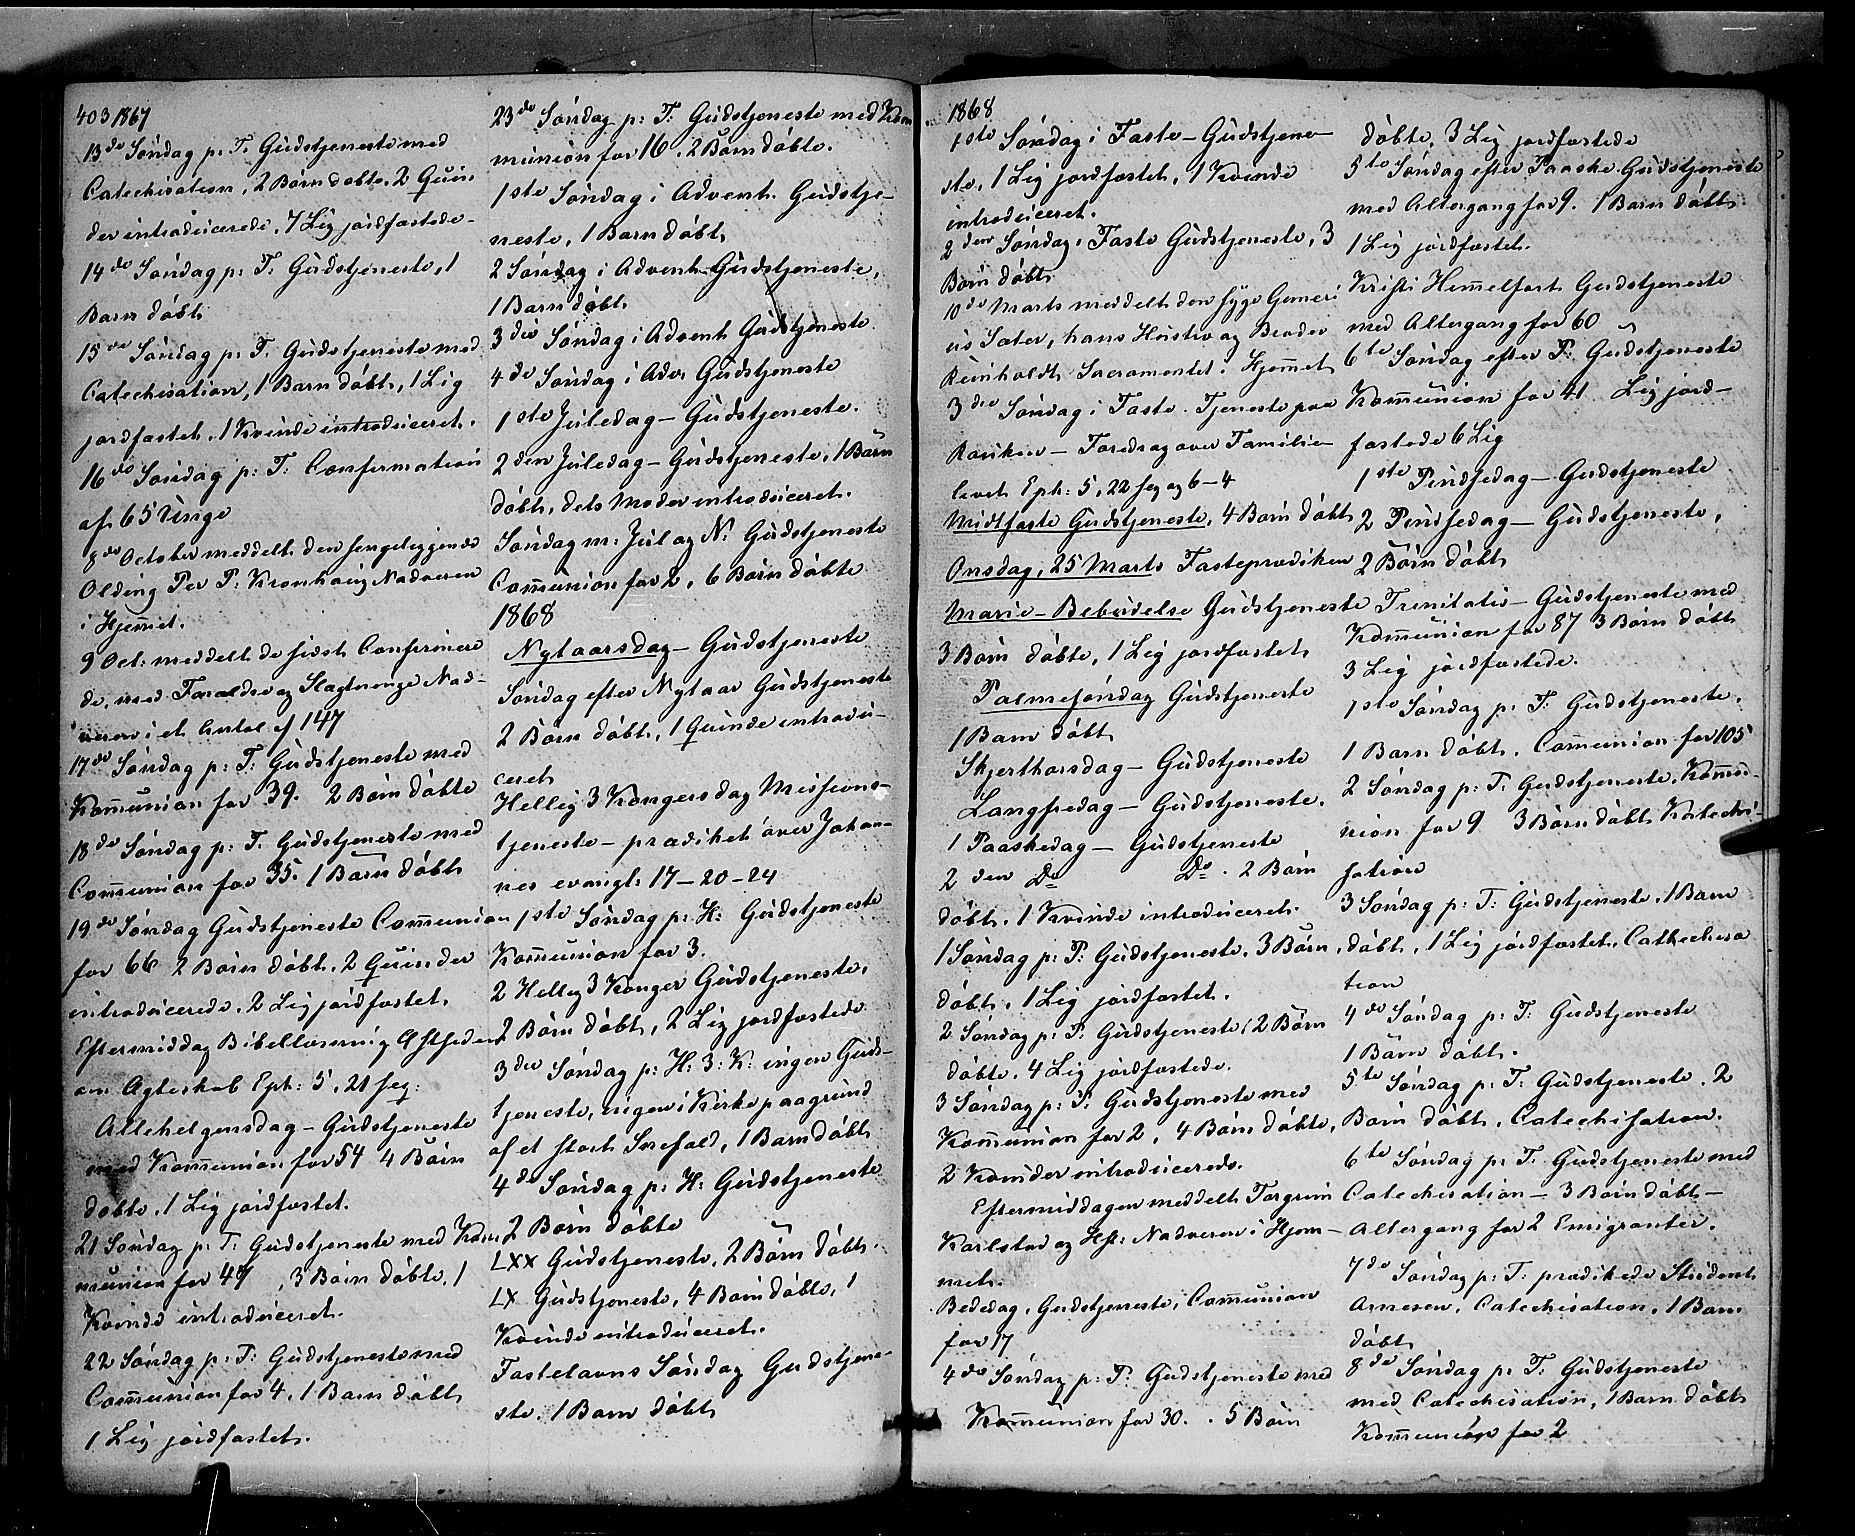 403 1867
13de Søndag p: T: Gudstjeneste med
Catechisation, 2 Børn døbte, 2 Quin
der introducerede, 7 Lig jordfæstede
14de Søndag p: T: Gudstjeneste, 1
Barn døbt
15de Søndag p: T. Gudstjeneste med
Catechisation, 1 Barn døbt, 1 Lig
jordfæstet, 1 Kvinde introduceret.
16de Søndag p: T: Confirmation
af 65 Unge
8de October meddelt den sengeliggende
Olding Per P: Kronhaug Nadveren
i Hjemmet.
9 Oct: meddelt de sidst Confirmere
de, med Forældre og Slagtninge Nad-
veren i et Antal af 147
17de Søndag p: T: Gudstjeneste med
Kommunion for 39. 2 Børn døbte
18de Søndag p: T. Gudstjeneste med
Communion for 35. 1 Barn døbt
19de Søndag Gudstjeneste Communion
for 66 2 Børn døbt, 2 Quinder
introducerede, 2 Lig jordfæstet.
Eftermiddag Bibellæsning
om Ægteskab Eph: 5, 21 seq:
Allehelgensdag - Gudstjeneste
med Kommunion for 54 4 Børn
døbte, 1 Lig jordfæstet.
21 Søndag p: T: Gudstjeneste med Kom
munion for 47, 3 Børn døbte, 1
Kvinde introduceret.
22 Søndag p: T: Gudstjeneste med
Communion for 4, 1 Barn døbt
1 Lig jordfæstet.
23de Søndag p: T: Gudstjeneste med Kom
munion for 16. 2 Børn døbte.
1ste Søndag i Advent. Gudstje-
neste, 1 Barn døbt
2 Søndag i Advent Gudstjeneste,
1 Barn døbt
3die Søndag i Advent Gudstjeneste
4de Søndag i Adv: Gudstjeneste
1ste Juledag - Gudstjeneste.
2den Juledag - Gudstjeneste, 1 Barn
døbt, dets Moder introduceret.
Søndag m: Jul og N: Gudstjeneste
Communion for 2, 6 Børn døbte
1868
Nytaarsdag - Gudstjeneste
Søndag efter Nytaar Gudstjeneste
2 Børn døbt, 1 Quinde introdu-
ceret
Hellig 3 Kongersdag Missions-
tjeneste - prædiket over Johan-
nes evangl: 17-20-24
1ste Søndag p: H: Gudstjeneste
Kommunion for 3.
2 Hellig 3 Konger Gudstjeneste,
2 Børn døbt, 2 Lig jordfæstede
3die Søndag p: H: 3: K: ingen Guds-
tjeneste, ingen i Kirke paagrund
af et stort Snefald, 1 Barn døbt
4de Søndag p: H: Gudstjeneste
2 Børn døbte
LXX Gudstjeneste, 2 Børn døbt.
LX Gudstjeneste, 4 Børn døbte, 1
Kvinde introduceret.
Fastelavns Søndag Gudstjene-
ste. 1 Barn døbt
1868
1ste Søndag i Faste - Gudstjene-
ste, 1 Lig jordfæstet, 1 Kvinde
introduceret.
2den Søndag i Faste Gudstjeneste, 3
Børn døbt
10de Marts meddelt den syge
hans Hustro og Broder
Reinholdt Sacramentet i Hjemmet
3die Søndag i Faste. Tjeneste paa
Foredrag over Familie
livet Eph: 5, 22 seq og 6-4
Midtfaste Gudstjeneste, 4 Børn døbt
Onsdag, 25 Marts Fasteprædiken
Marie-Bebudelse Gudstjeneste
3 Børn døbte, 1 Lig jordfæstet
Palmesøndag Gudstjeneste
1 Barn døbt
Skjærthorsdag - Gudstjeneste
Langfredag - Gudstjeneste.
1 Paaskedag - Gudstjeneste
2den Do Do. 2 Børn
døbt. 1 Kvinde introduceret.
1 Søndag p: P: Gudstjeneste. 3 Børn
døbt. 1 Lig jordfæstet.
2 Søndag p: P: Gudstjeneste, 2 Børn
døbte. 4 Lig jordfæstede.
3 Søndag p: P: Gudstjeneste med
Kommunion for 2, 4 Børn døbte,
2 Kvinder introducerede.
Eftermiddagen meddelt Torgrim
Karlstad og Hst: Nadveren i Hjem-
met.
Bededag, Gudstjeneste, Communion
for 17
4de Søndag p: P: Gudstjeneste med
Kommunion for 30. . 5 Børn
døbte, 3 Lig jordfæstede
5te Søndag efter Paaske Gudstjeneste
med Altergang for 9. 1 Barn døbt
1 Lig jordfæstet.
Kristi Himmelfart Gudstjeneste
med Altergang for 60
6te Søndag efter P: Gudstjeneste
Kommunion for 41 Lig jord-
fæstede 6 Lig
1ste Pindsedag - Gudstjeneste
2 Pindsedag - Gudstjeneste,
2 Børn døbt
Trinitatis - Gudstjeneste med
Kommunion for 87 3 Børn døbt
3 Lig jordfæstede.
1ste Søndag p: T: Gudstjeneste,
1 Barn døbt. Communion for 105
2 Søndag p: T: Gudstjeneste, Kommu-
nion for 9 3 Børn døbt Katechi-
sation
3 Søndag p: T: Gudstjeneste, 1 Barn
døbt, 1 Lig jordfæstet, Cathechisa
tion
4de Søndag p: T: Gudstjeneste
1 Barn døbt.
5te Søndag p: T: Gudstjeneste. 2
Børn døbt, Catechisation.
6te Søndag p: T: Gudstjeneste med
Catechisation - 3 Børn døbt -
Altergang for 2 Emigranter.
7de Søndag p: T: prædikede Student
Arnesen, Catechisation, 1 Barn
døbt
8de Søndag p: T: Gudstjeneste
med Catechisation, 1 Barn døbt
Kommunion for 2